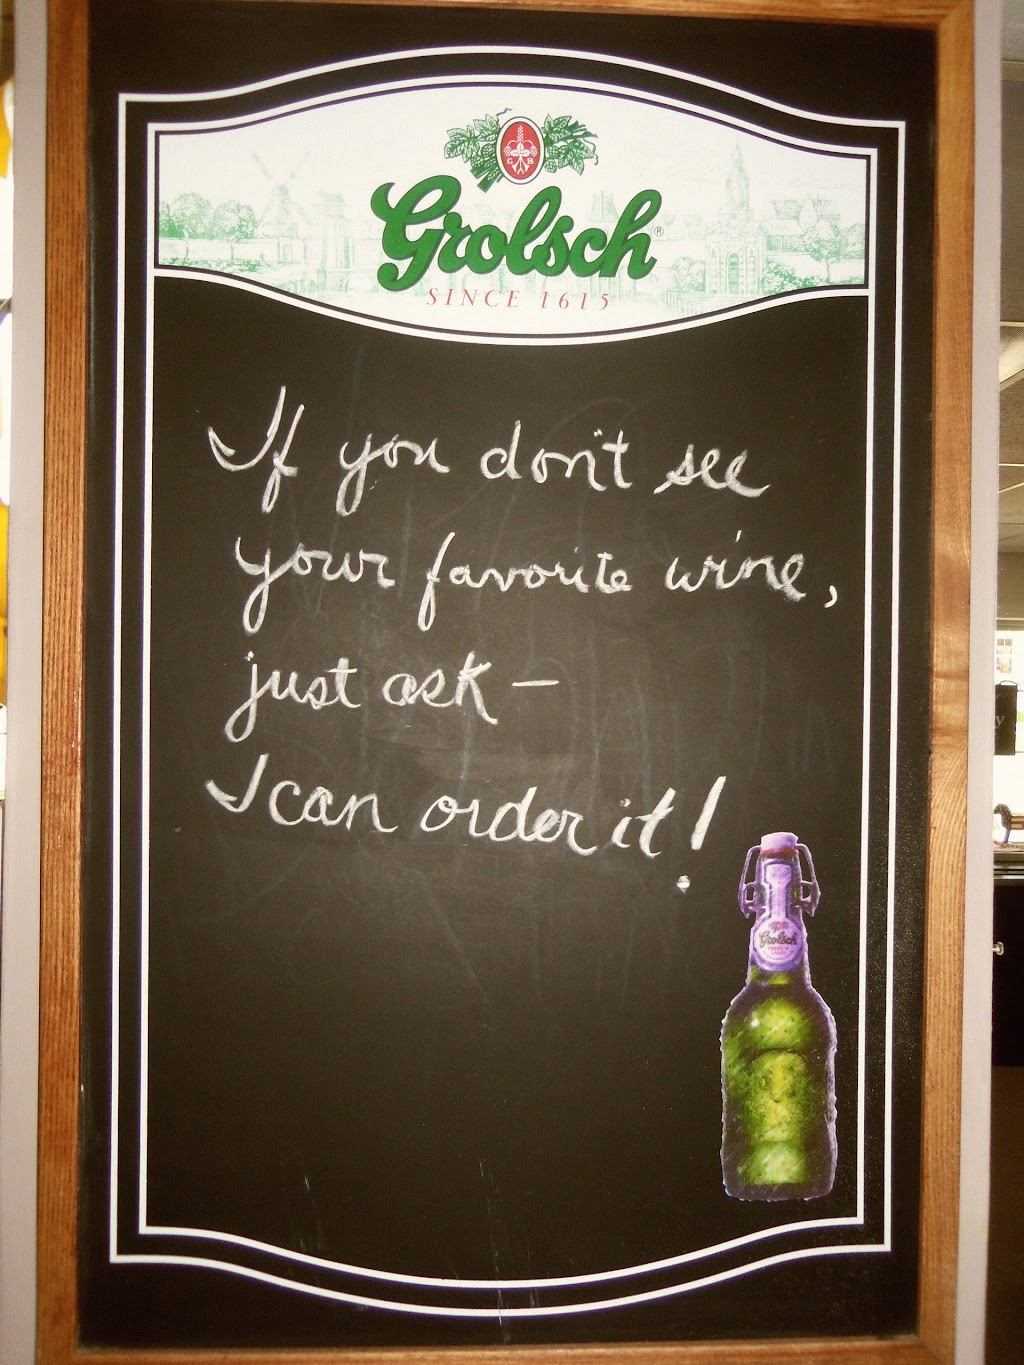 G B
Grolsch®
SINCE 1615
If you don't see
your favorite wine,
just ask —
I can order it!
Grolsch